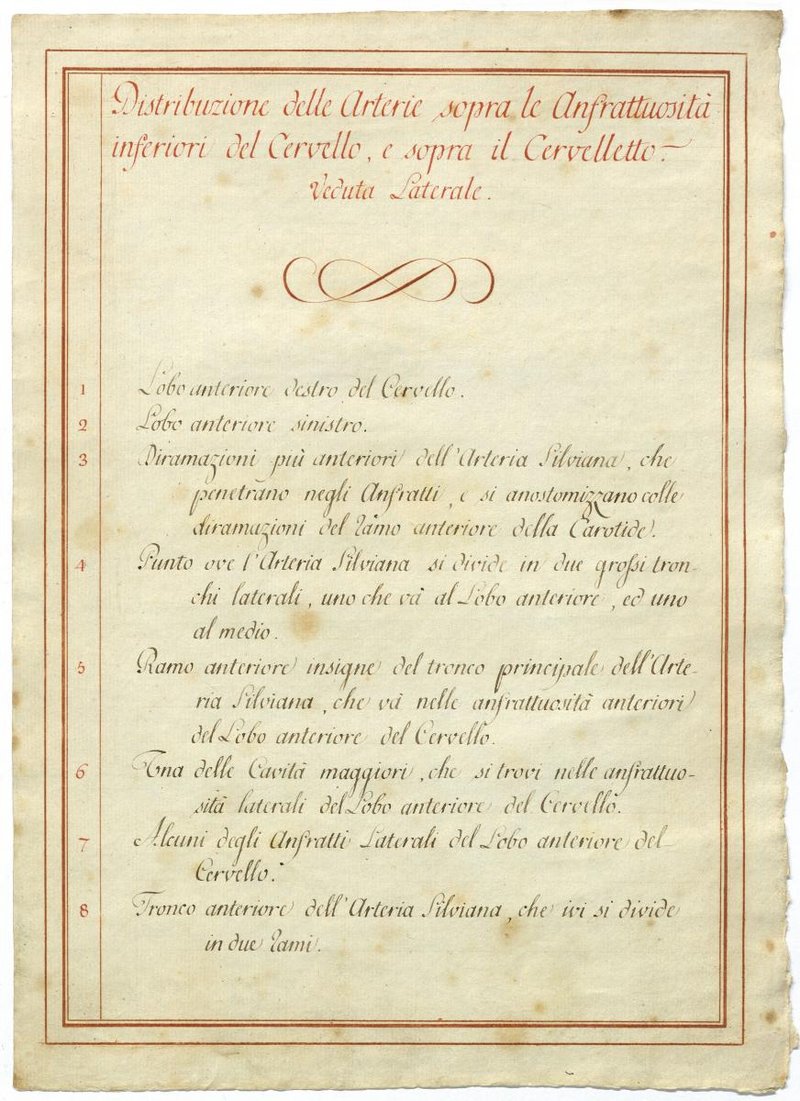 Distribuzione delle Arterie sopra le Anfrattuosità
inferiori del Cervello, e sopra il Cervelletto.
Veduta Laterale.
1 Lobo anteriore destro del Cervello.
2 Lobo anteriore sinistro.
3 Diramazioni più anteriori dell'Arteria Silviana, che
penetrano negli Anfratti, e si anostomizzano colle
diramazioni del ramo anteriore della Carotide.
4 Punto ove l'Arteria Silviana si divide in due grossi tron-
chi laterali, uno che và al Lobo anteriore, ed uno
al medio.
5 Ramo anteriore insigne del tronco principale dell'Arte-
ria Silviana, che và nelle anfrattuosità anteriori
del Lobo anteriore del Cervello.
6 Una delle Cavità maggiori, che si trovi nelle anfrattuo-
sità laterali del Lobo anteriore del Cervello.
7 Alcuni degli Anfratti Laterali del Lobo anteriore del
Cervello.
8 Tronco anteriore dell'Arteria Silviana, che ivi si divide
in due rami.